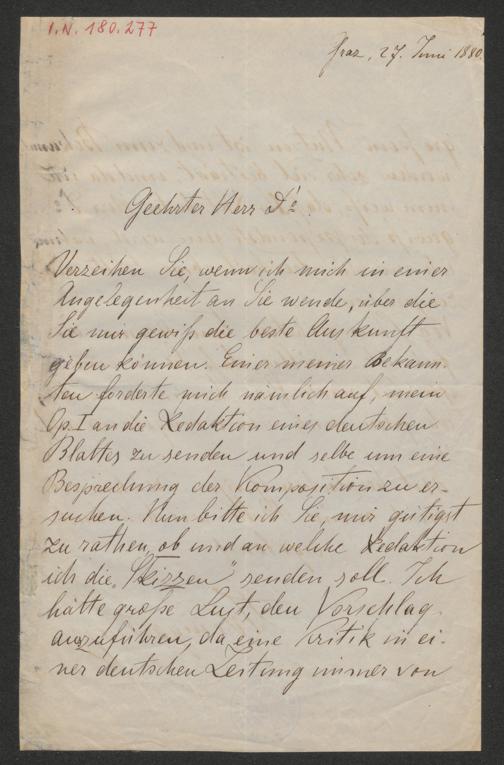 I.N. 180.277
Graz, 27. Juni 1880.
Geehrter Herr Dr.
Verzeihen Sie, wenn ich mich in einer
Angelegenheit an Sie wende, über die
Sie mir gewiß die beste Auskunft
geben können. Einer meiner Bekann-
ten forderte mich nämlich auf, mein
Op. I an die Redaktion eines deutschen
Blattes zu senden und selbe um eine
Besprechung der Komposition zu er-
suchen. Nun bitte ich Sie, mir gütigst
zu rathen, ob und an welche Redaktion
ich die „Skizzen" senden soll. Ich
hätte große Lust, den Vorschlag
auszuführen, da eine Kritik in ei-
ner deutschen Zeitung immer von